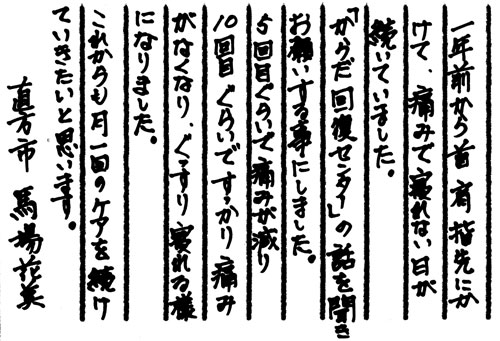 一年前から首 肩 指先にか
けて、痛みで寝れない日が
続いていました。
「からだ回復センター」の話を聞き
お願いする事にしました。
5回目ぐらいで痛みが減り
10回目ぐらいですっかり痛み
がなくなり、ぐっすり寝れる様
になりました。
これからも月一回のケアを続け
ていきたいと思います。
直方市 馬場花美